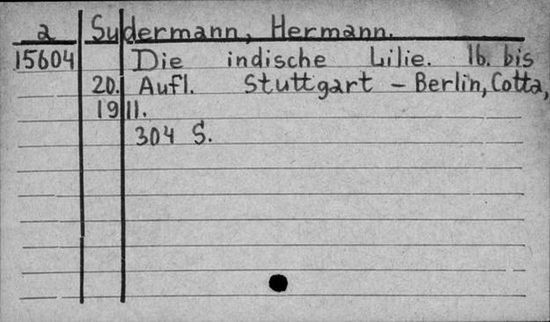 a Sydermann, Hermann.
15604 Die indische Lilie. 16. bis
20. Aufl. Stuttgart – Berlin, Cotta,
1911.
304 S.